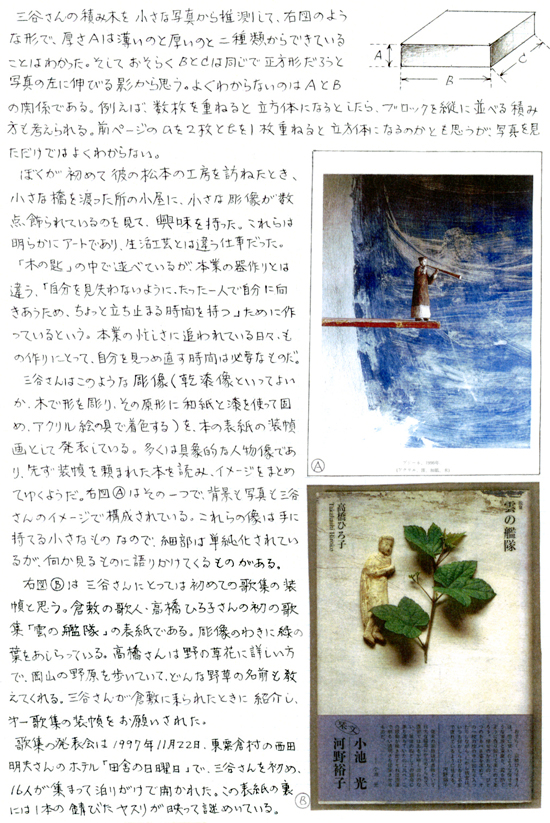 三谷さんの積み木を小さな写真から推測して、右図のよう
な形で、厚さAは薄いのと厚いのと二種類からできている
ことはわかった。そしておそらくBとCは同じで正方形だろうと
写真の左に伸びる影から思う。よくわからないのはAとB
の関係である。例えば、数枚を重ねると立方体になるとしたら、ブロックを縦に並べる積み
方も考えられる。前ページのaを2枚とbを1枚重ねると立方体になるのかとも思うが、写真を見
ただけではよくわからない。
A
B
C
ぼくが初めて彼の松本の工房を訪ねたとき、
小さな橋を渡った所の小屋に、小さな彫像が数
点、飾られているのを見て、興味を持った。これらは
明らかにアートであり、生活工芸とは違う仕事だった。
「木の匙」の中で述べているが、本業の器作りとは
違う、「自分を見失わないように、たった一人で自分に向
きあうため、ちょっと立ち止まる時間を持つ」ために作
っているという。本業の忙しさに追われている日々、も
の作りにとって、自分を見つめ直す時間は必要なものだ。
三谷さんはこのような彫像(乾漆像といってよい
か、木で形を彫り、その原形に和紙と漆を使って固
め、アクリル絵の具で着色する)を、本の表紙の装幀
画として発表している。多くは具象的な人物像であ
り、先ず装幀を頼まれた本を読み、イメージをまとめ
てゆくようだ。右図Ⓐはその一つで、背景と写真と三谷
さんのイメージで構成されている。これらの像は手に
持てる小さなものなので、細部は単純化されてい
るが、何か見るものに語りかけてくるものがある。
右図Ⓑは三谷さんにとっては初めての歌集の装
幀と思う。倉敷の歌人・高橋ひろ子さんの初の歌
集「雲の艦隊」の表紙である。彫像のわきに緑の
葉をあしらっている。高橋さんは野の草花に詳しい方
で、岡山の野原を歩いていて、どんな野草の名前も教
えてくれる。三谷さんが倉敷に来られたときに紹介し、
第一歌集の装幀をお願いされた。
歌集の発表会は1997年11月22日、東粟倉村の西田
明夫さんのホテル「田舎の日曜日」で、三谷さんを初め、
16人が集まって泊りがけで開かれた。この表紙の裏
には1本の錆びたヤスリが映って謎めいている。
Ⓐ
雲の艦隊
高橋ひろ子
Takahashi Hiroko
小池 光
河野裕子
Ⓑ